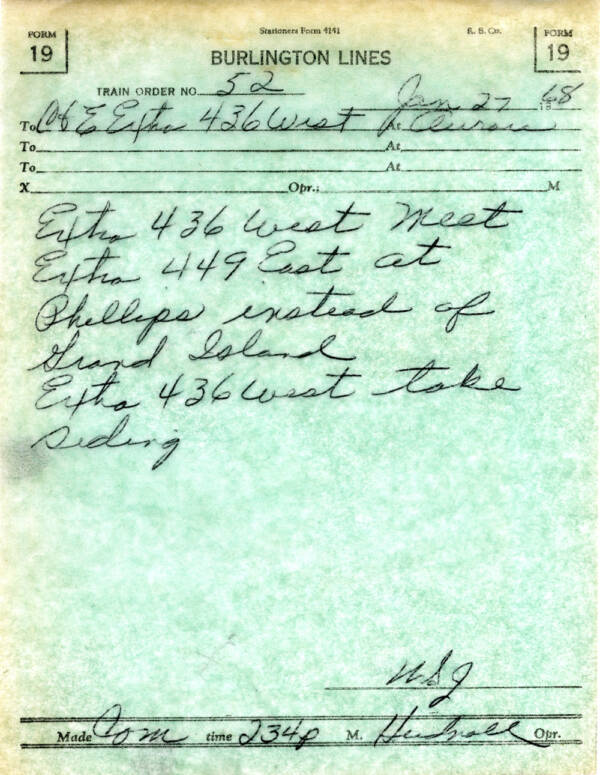 FORM 19
Stationers Form 4141
R. B. Co.
FORM 19
BURLINGTON LINES
TRAIN ORDER NO. 52
Jan 27 1968
To C&E Extra 436 West At Aurora
To At
To At
X Opr.; M
Extra 436 West Meet
Extra 449 East at
Phillips instead of
Grand Island
Extra 436 West take
siding
WSJ
Made Com time 234p M. Opr.